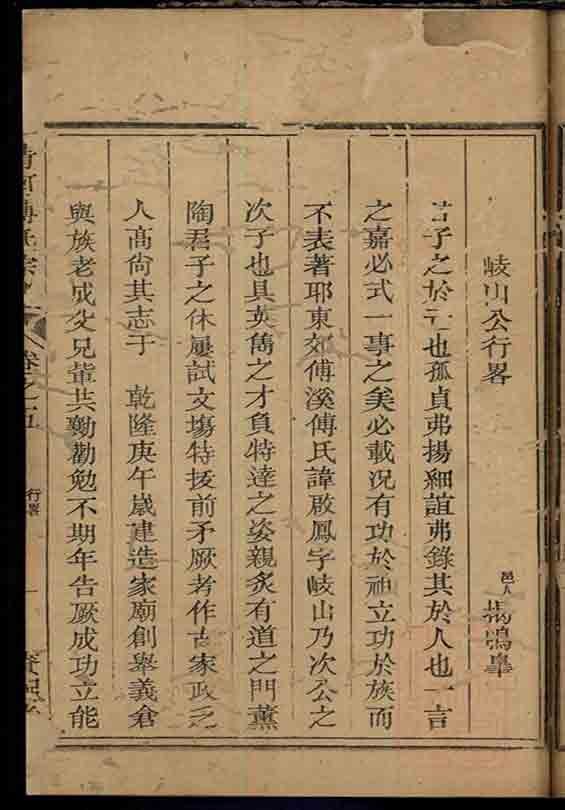 岐山公行畧
邑人 楊鳴臯
君子之於 也孤貞弗揚細誼弗錄其於人也一言
之嘉必式一事之美必載况有功於祖立功於族而
不表著耶東郊傅溪傅氏諱啟鳳字岐山乃次公之
次子也具英儁之才負特達之姿親炙有道之門薰
陶君子之休屢試文塲特拔前矛厥考作古家政乏
人高尙其志于 乾隆庚午嵗建造家廟創舉義倉
與族老成父兄軰共勷勸勉不期年告厥成功立能
清河傅氏宗 卷之五 行畧 一